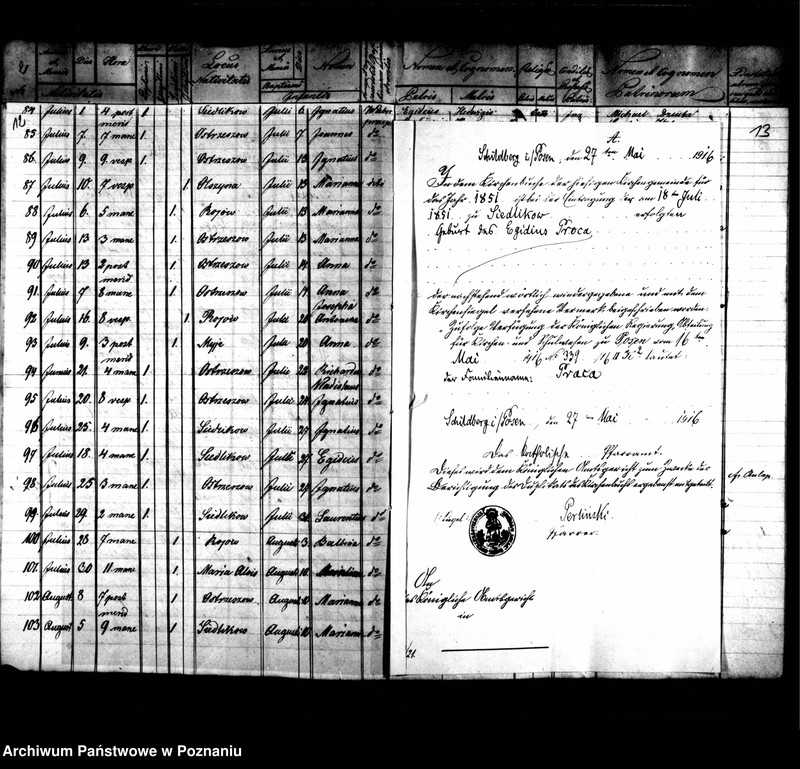 Annus et Mensis Dies Hora Locus Nativitatis Nomen Nomen et Cognomen Religio Nomen et Cognomen
Nativitatis Baptismi Infantis Patris Matris Patrinorum
12
13
84 Julius 1 4 post merid 1. Siedlikow Julii 6 Ignatius Egidius Hedvigis Michael
85 Julius 7. 7 mane 1. Ostrzeszow Julii 7 Joannes dto
86. Julius 9. 9 vesp 1. Ostrzeszow Julii 13 Ignatius dto
87 Julius 10. 7 vesp 1. Olszyna Julii 13 Marianna dito
88 Julius 6. 5 mane 1. Rojów Julii 13 Marianna dto
89 Julius 13 3 mane 1. Ostrzeszow Julii 13 Marianna dto
90 Julius 13 2 post merid 1. Ostrzeszow Julii 14 Anna dto
91. Julius 7 8 mane 1. Ostrzeszow Julii 17 Anna Josepha dto
92 Julius 16. 8 vesp. 1. Rojów Julii 20 Antonina dto
93 Julius 9. 3 post merid 1. Myje Julii 20 Anna dto
94 Junius 21. 4 mane 1. Ostrzeszow Julii 22 Richardus Wladislaus dto
95 Julius 20. 8 vesp. 1. Ostrzeszow Julii 24 Ignatius dto
96 Julius 25. 4 mane 1. Siedlikow Julii 27 Ignatius dto
97 Julius 18. 4 mane 1. Siedlikow Julii 27 Egidius dto
98 Julius 25 3 mane 1. Ostrzeszow Julii 29 Ignatius dto
99 Julius 29. 2 mane 1. Siedlikow Julii 31 Laurentius dto
100 Julius 23 7 mane 1. Rojow August 3. Balbina dto
101. Julius 30 11 mane 1. Maria August 10 Marianna dto
102 August 8 7 post merid 1. Ostrzeszow August 10 Marianna dto
103 August 5 9 mane 1 Siedlikow August 10 Mariann dto
A.
Schildberg i/Posen, den 27 ten Mai 1916
In dem Kirchenbuche der hiesigen Kirchengemeinde für
das Jahr 1851 ist bei der Eintragung der am 18 ten Juli
1851 zu Siedlikow erfolgten
Geburt des Egidius Proca
der nachstehend wörtlich wiedergegebene und mit dem
Kirchensiegel versehene Vermerk beigeschrieben worden:
"Zufolge Verfügung der Königlichen Regierung, Abteilung
für Kirchen- und Schulwesen zu Posen vom 16 ten
Mai 1916 No 339 /16 II lautet
der Familienname: Praca
Schildberg i/Posen, den 27 ten Mai 1916
Das katholische Pfarramt.
Dieses wird dem Königlichen Amtsgericht zum Zwecke der
Berichtigung des Duplikats des Kirchenbuchs ergebenst mitgeteilt.
(Siegel) Perlinski
Pfarrer.
An
das Königliche Amtsgericht
in
21.
cfr. Anlage
Archiwum Państwowe w Poznaniu